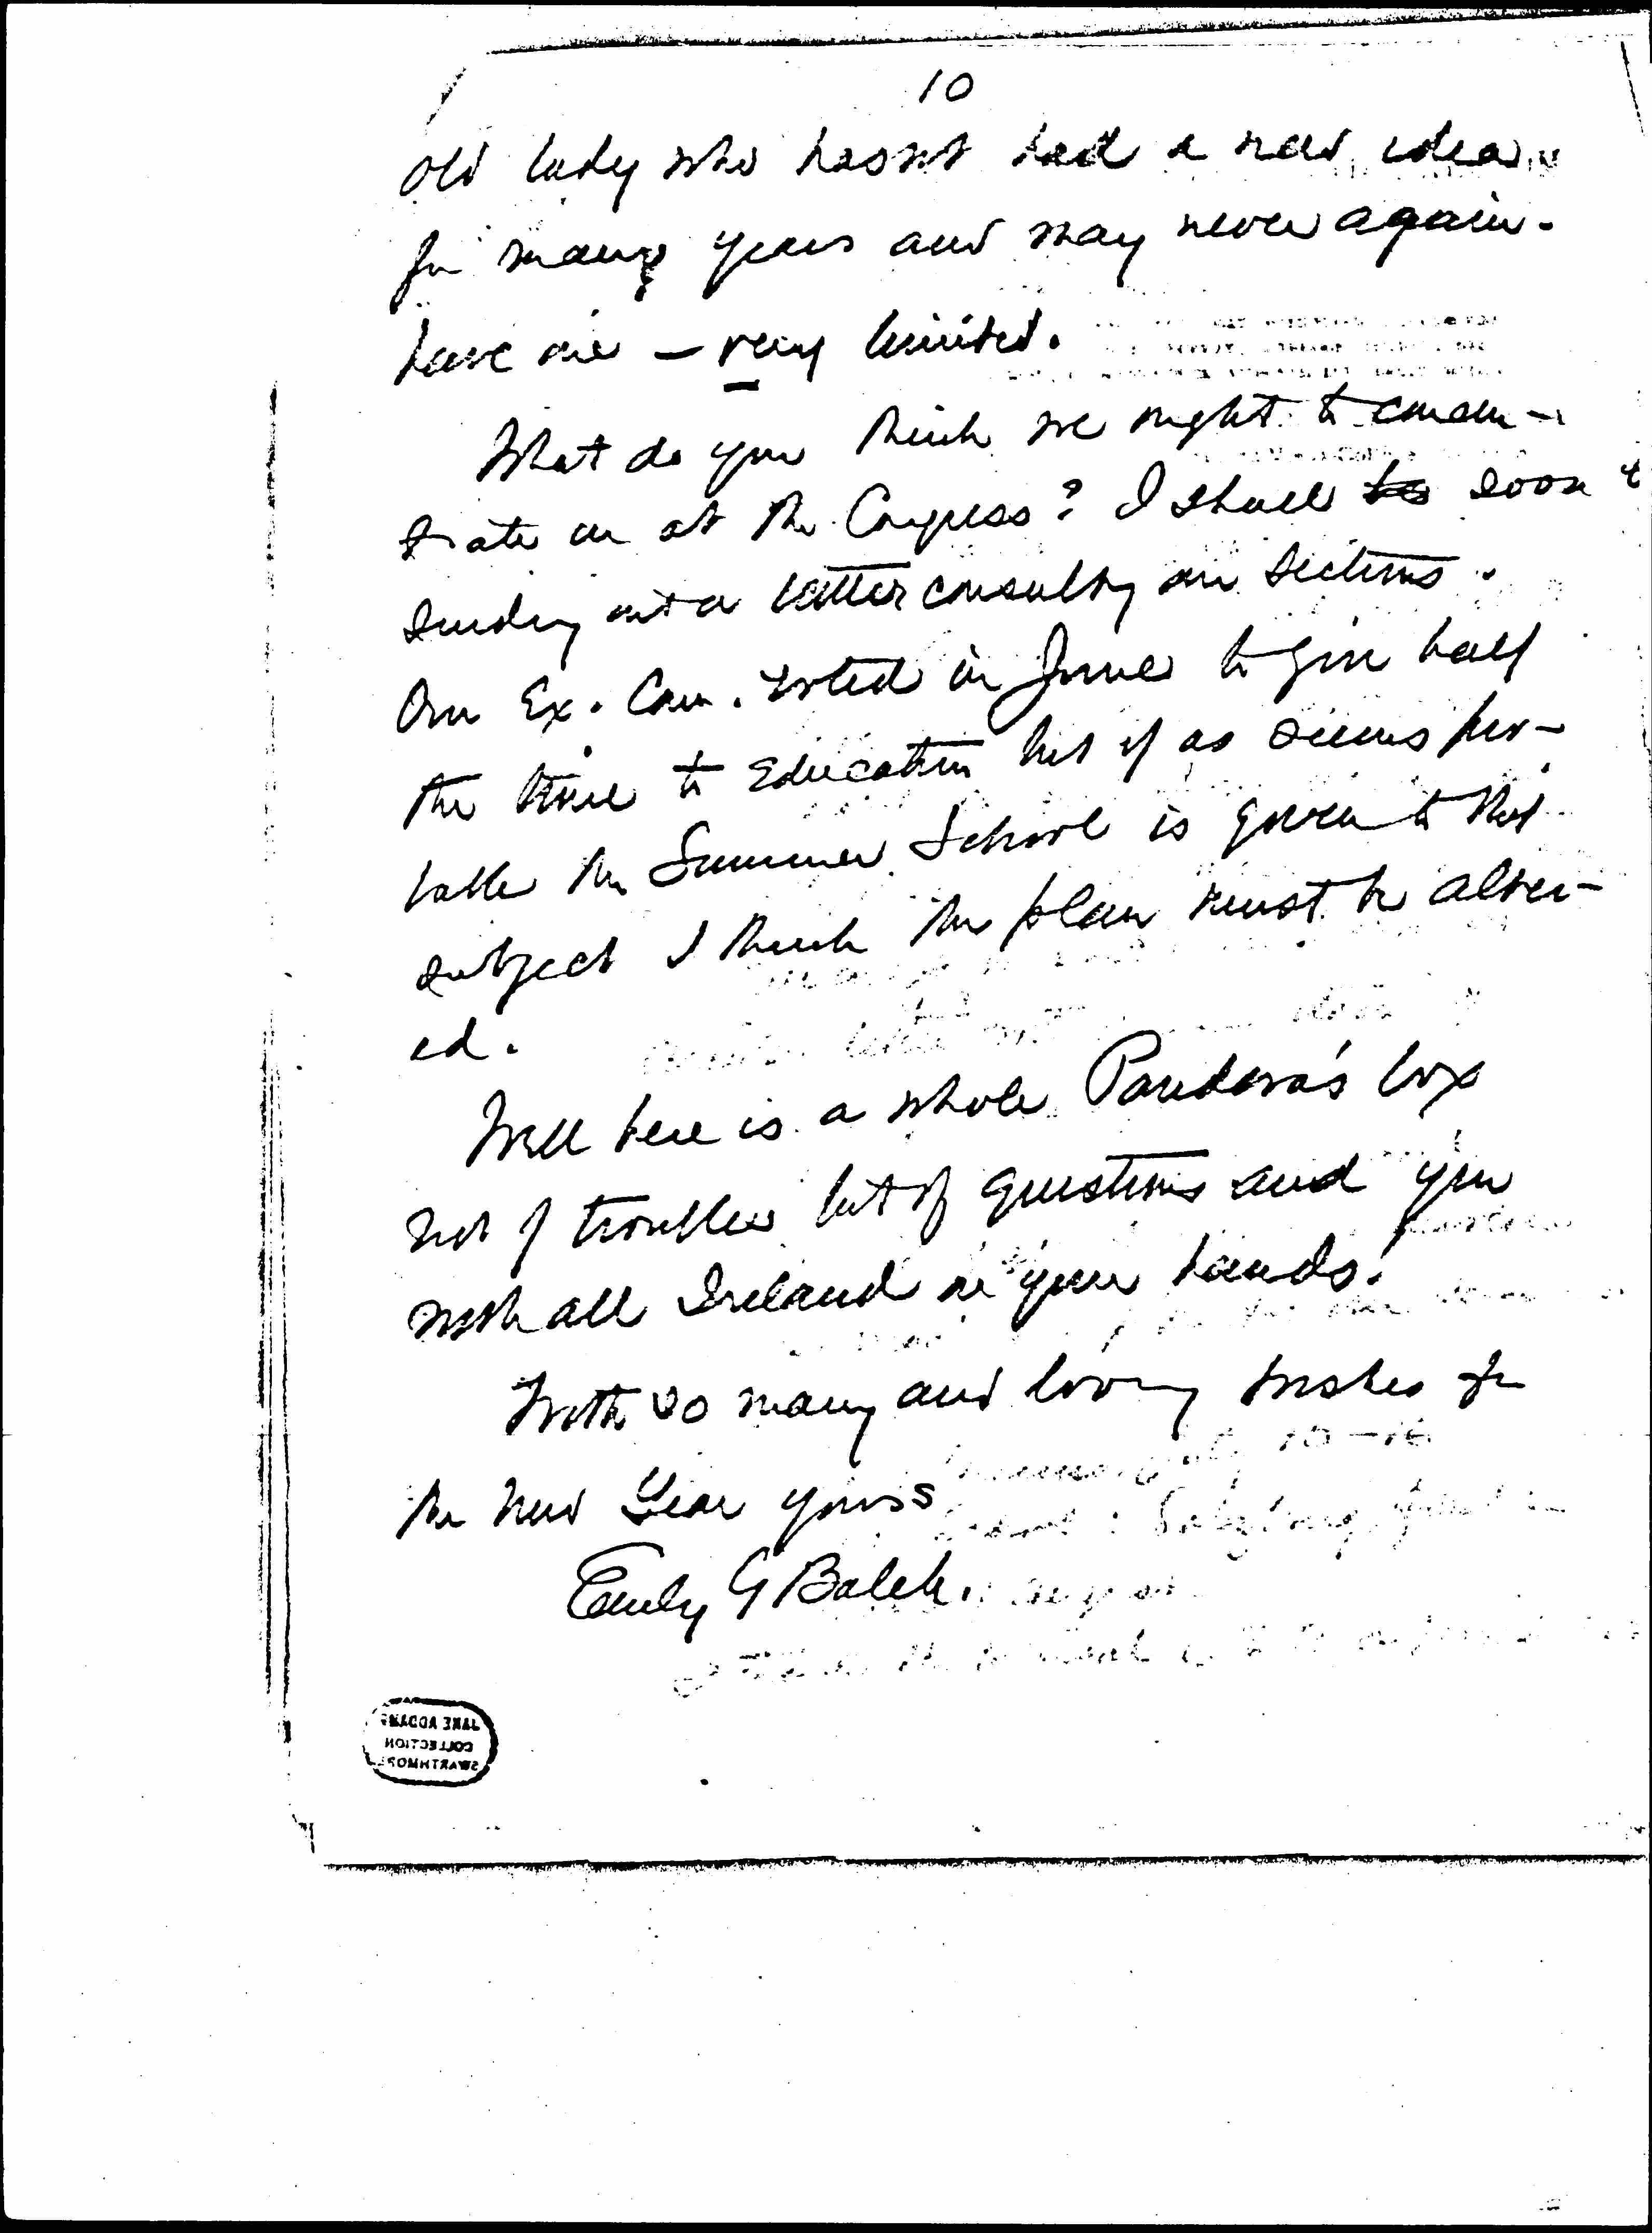 10
old lady who hasnt had a new idea
for many years and may never again
have one – very limited.
What do you think we ought to concen-
trate on at the Congress? I shall be soon
sending out a letter consulting our Sections.
Our Ex. Com. voted in June to give half
the time to Education but if as seems pro-
bable the Summer School is given to that
subject I think the plan must be alter-
ed.
Well here is a whole Pandora's box
not of troubles but of questions and you
with all Ireland on your hands!
With so many and loving wishes for
the New Year yours
Emily G Balch.
JANE ADDAMS
COLLECTION
SWARTHMORE